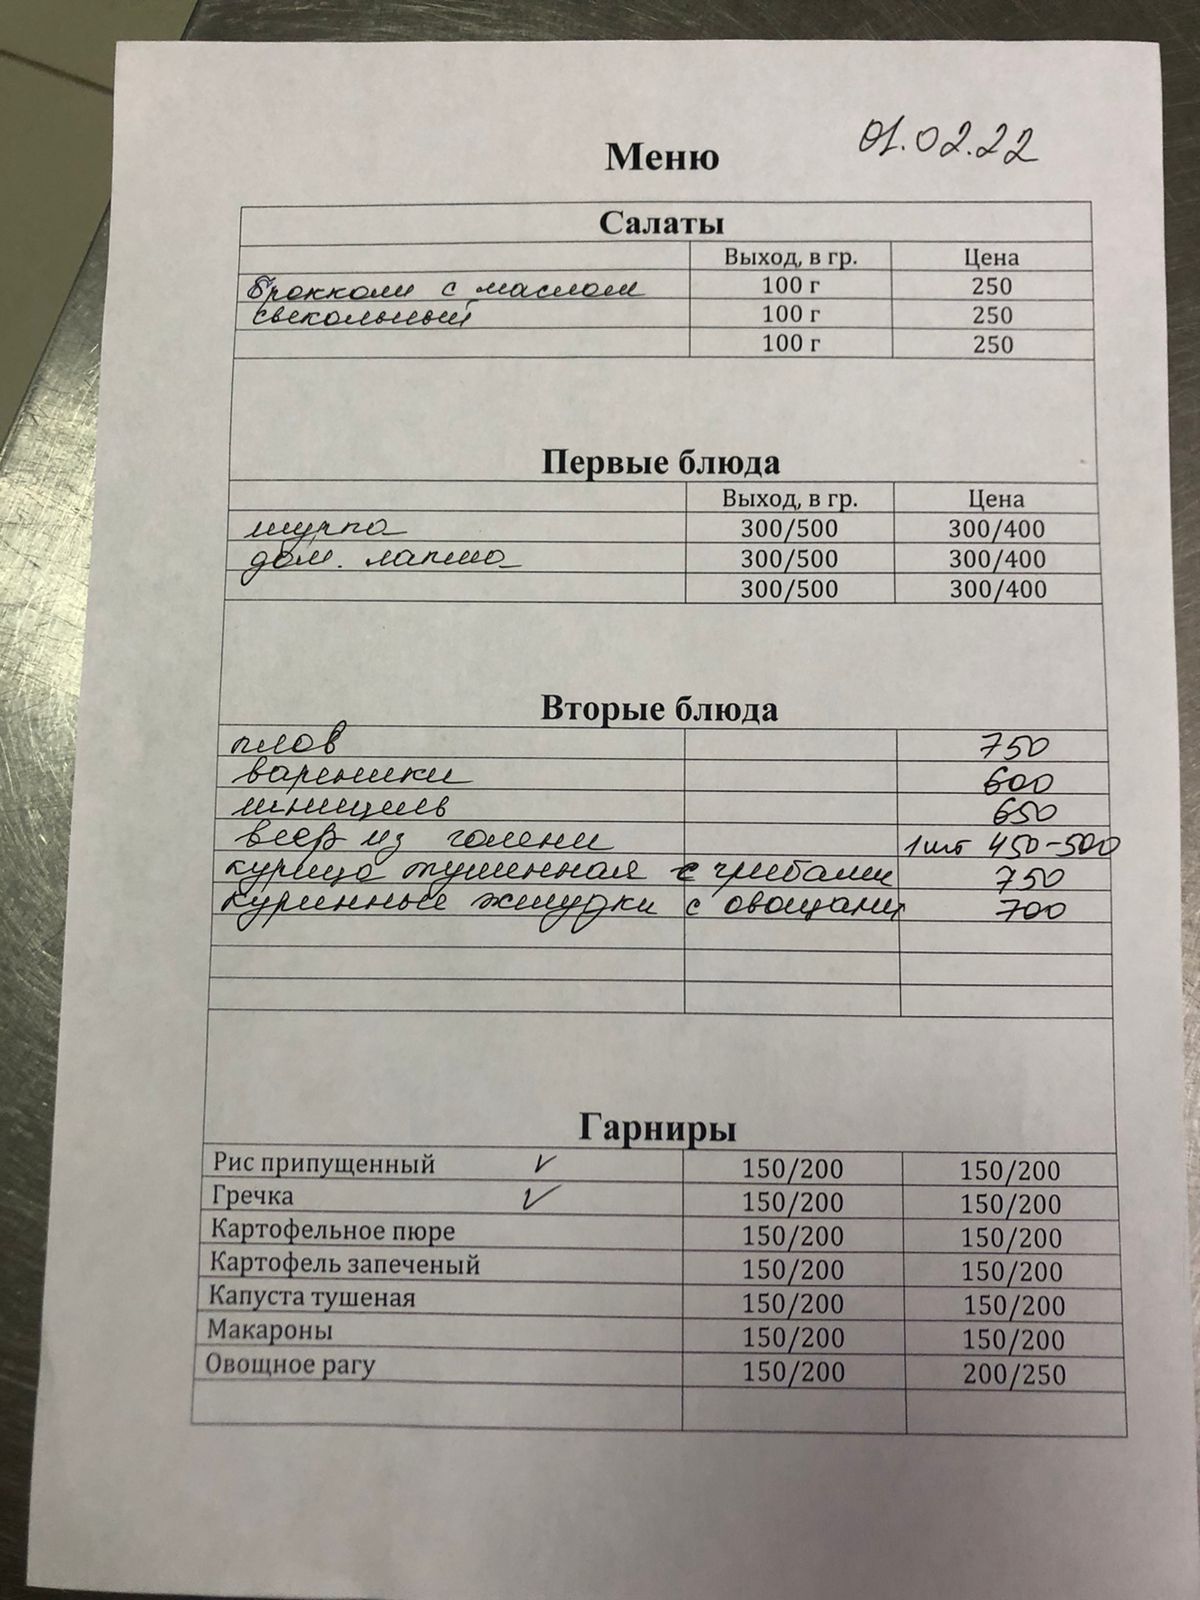 01.02.22
Меню
Салаты
Выход, в гр. Цена
Брокколи с маслом 100 г 250
свекольный 100 г 250
100 г 250
Первые блюда
Выход, в гр. Цена
шурпа 300/500 300/400
дом. лапша 300/500 300/400
300/500 300/400
Вторые блюда
плов 750
вареники 600
шницель 650
веер из голени 1шт 450-500
курица тушенная с грибами 750
куринные желудки с овощами 700
Гарниры
Рис припущенный ✓ 150/200 150/200
Гречка ✓ 150/200 150/200
Картофельное пюре 150/200 150/200
Картофель запеченый 150/200 150/200
Капуста тушеная 150/200 150/200
Макароны 150/200 150/200
Овощное рагу 150/200 200/250